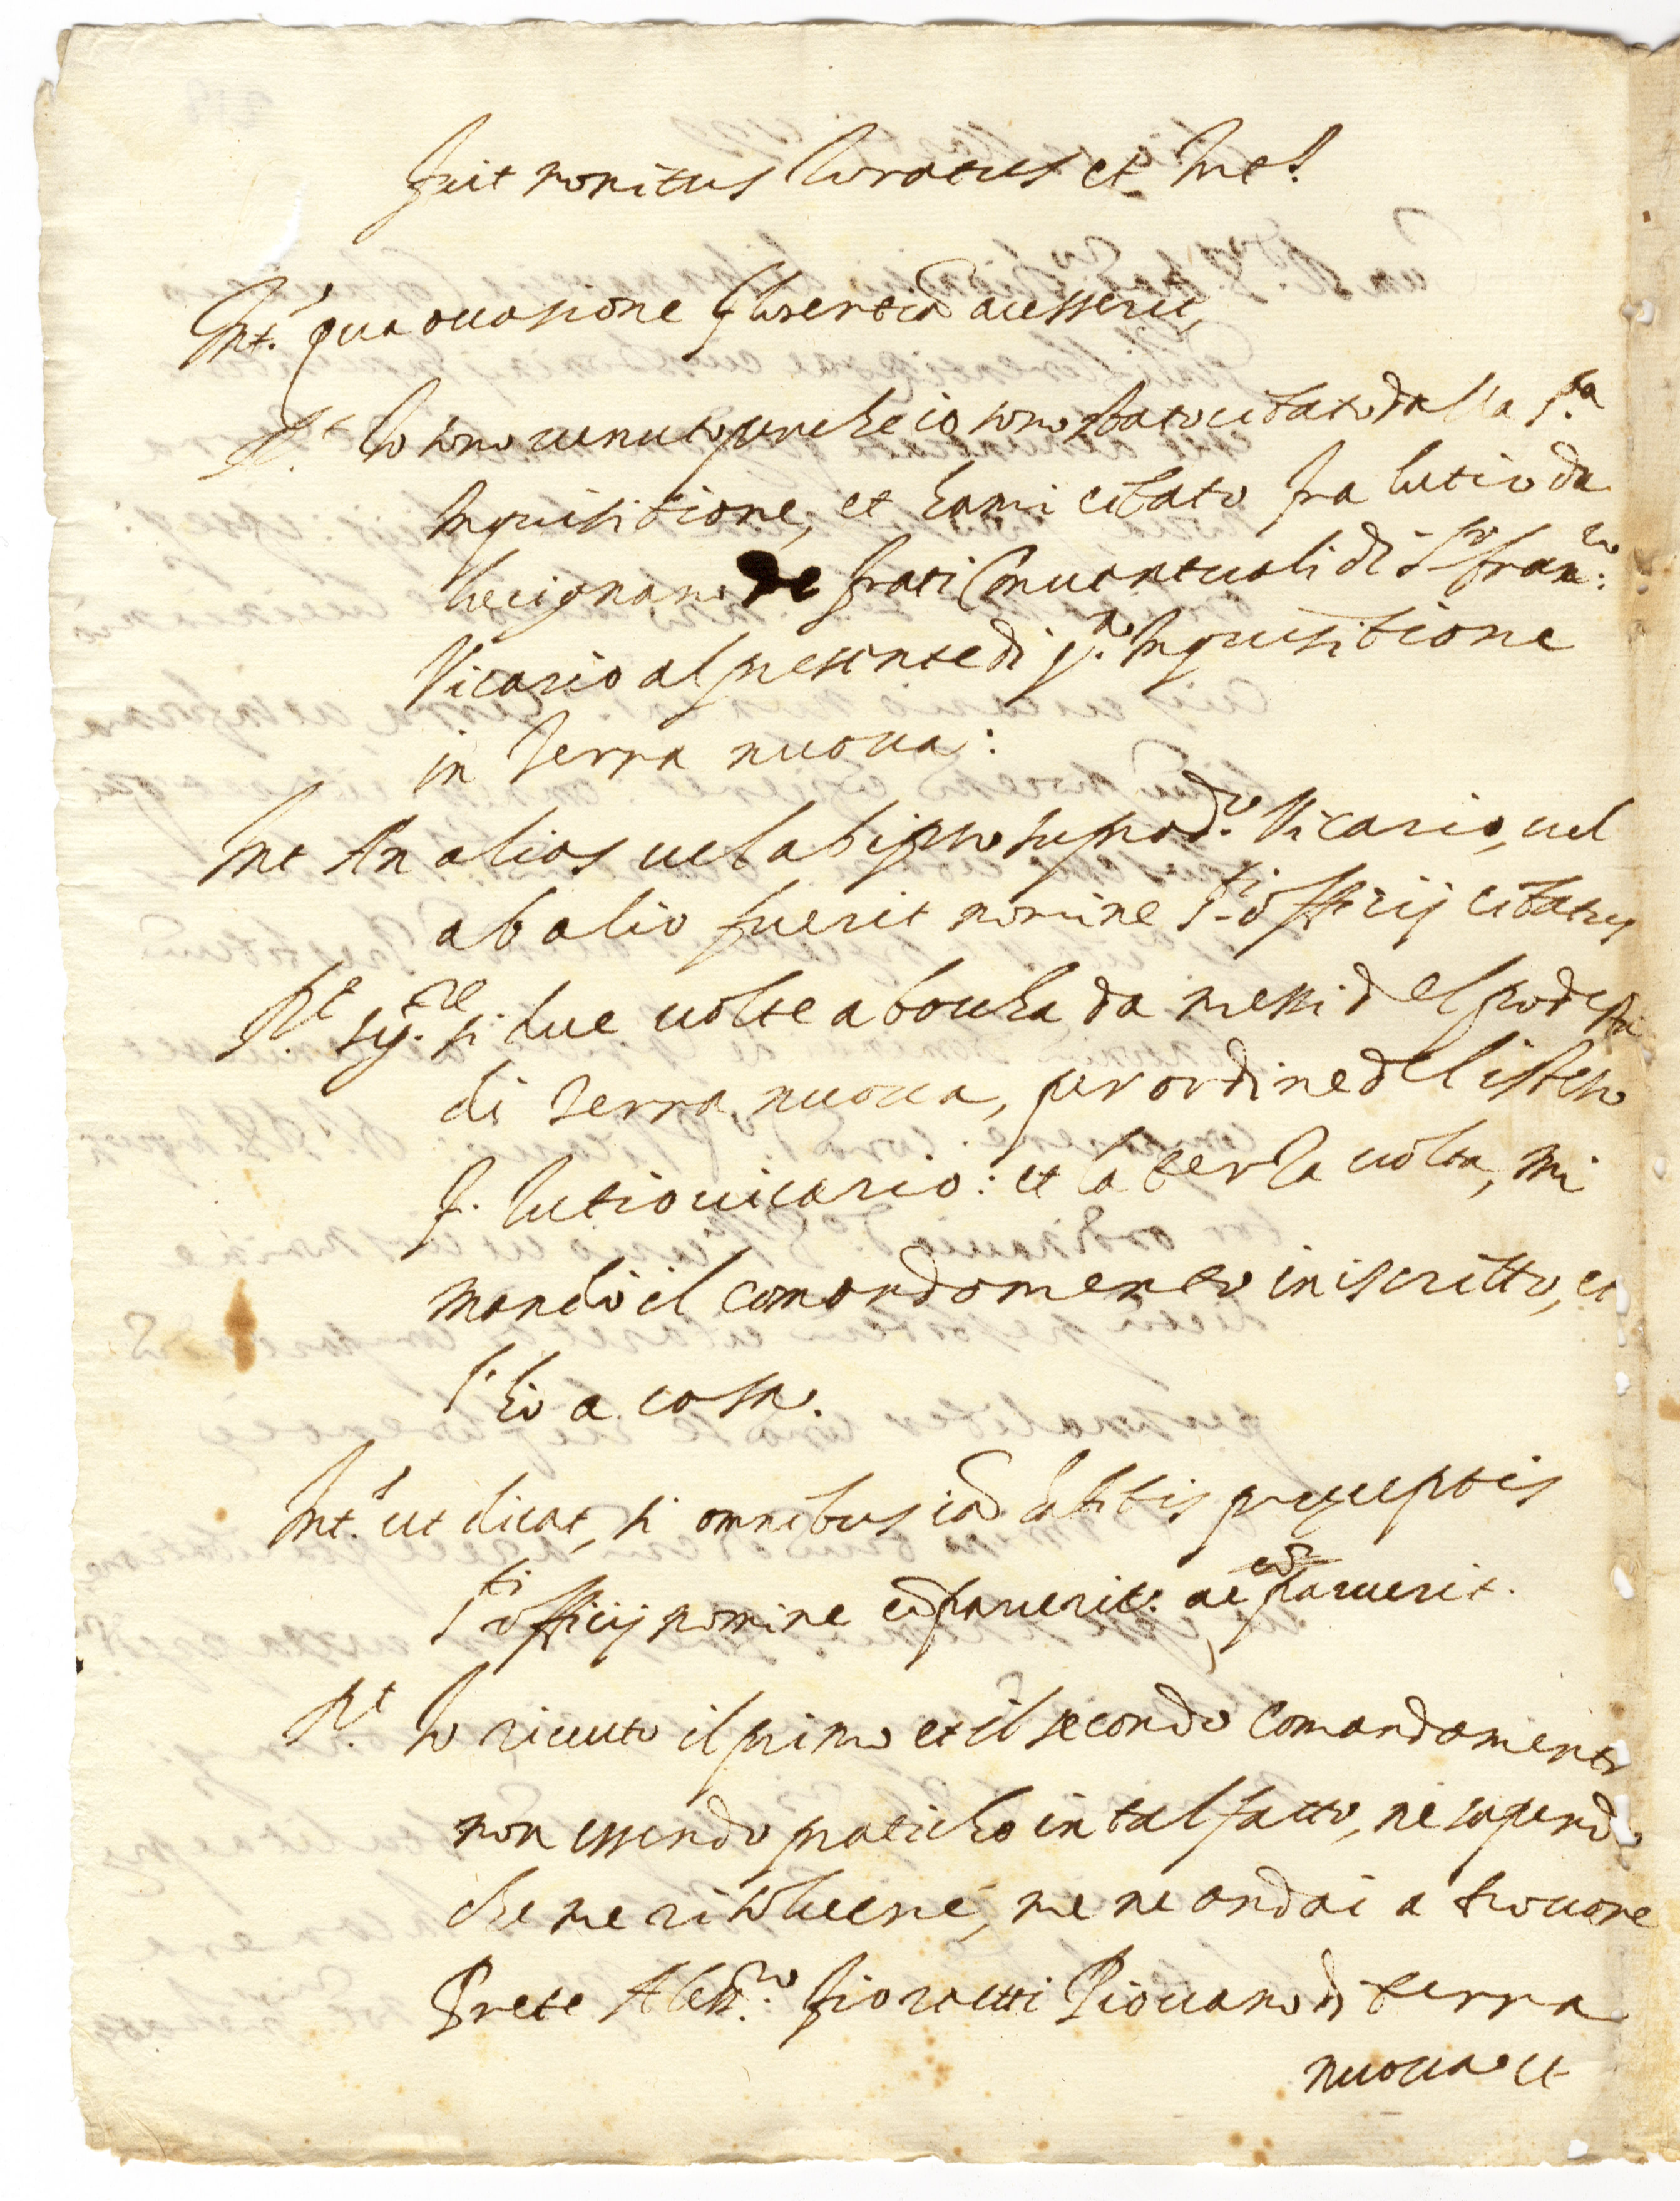 fuit monitus Curatus et Int.s
Int.s qua occasione florentiã accesserit,
R.t Io sono venuto perche io sono stato citato dalla S.ta
Inquisitione, et hami citato fra lutio da
lucignano de frati Conventuali di S.to fran.co
Vicario al presente di q.ta Inquisitione
in terra nuova:
Int An alias vel ab ipso suprad.to Vicario, vel
ab alio fuerit nomine S.ti officij citatus
R.t sig.re si due volte a boucha da messi del podestà
di terra nuova, per ordine del istesso
f. lutio vicario: et la terza volta, mi
mandò il comandamento in iscritto, et
l'ho a casa.
Int.s ut dicat, si omnibus preceptis
S.ti officij nomine paruerit.
R.t Io ricevuto il primo et il secondo comandamento
non essendo praticho in tal fatto, ne sapendo
che me risolvere, me ne andai a trovare
Prete Aless.ro fioravtti Piovano di terra
nuova et